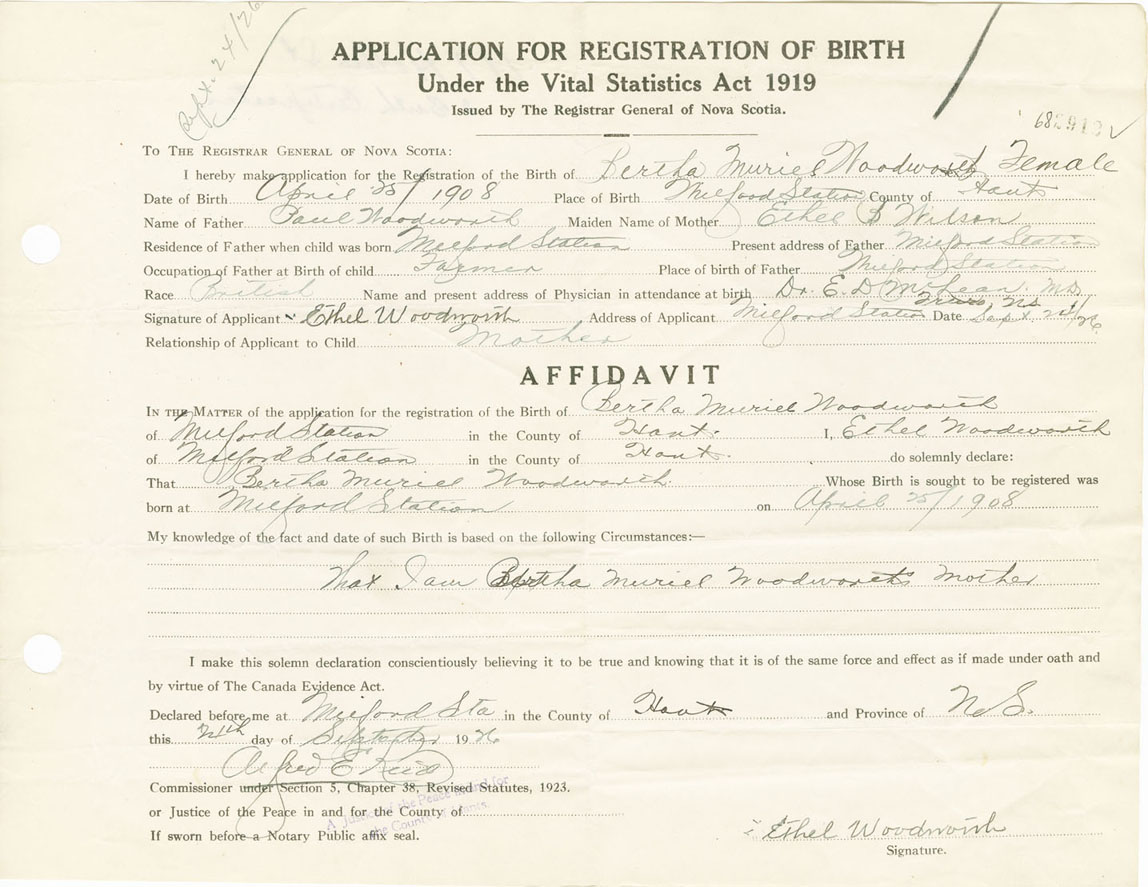 Sept. 24/26
APPLICATION FOR REGISTRATION OF BIRTH
Under the Vital Statistics Act 1919
Issued by The Registrar General of Nova Scotia.
TO THE REGISTRAR GENERAL OF NOVA SCOTIA:
I hereby make application for the Registration of the Birth of Bertha Muriel Woodworth Female
Date of Birth April 25/1908 Place of Birth Milford Station County of Hants
Name of Father Paul Woodworth Maiden Name of Mother Ethel B Wilson
Residence of Father when child was born Milford Station Present address of Father Milford Station
Occupation of Father at Birth of child Farmer Place of birth of Father Milford Station
Race British Name and present address of Physician in attendance at birth Dr. E. D McLean. M.D. Truro N.S.
Signature of Applicant Ethel Woodworth Address of Applicant Milford Station Date Sept. 24/26.
Relationship of Applicant to Child Mother
AFFIDAVIT
IN THE MATTER of the application for the registration of the Birth of Bertha Muriel Woodworth
of Milford Station in the County of Hants. I, Ethel Woodworth
of Milford Station in the County of Hants. do solemnly declare:
That Bertha Muriel Woodworth. Whose Birth is sought to be registered was
born at Milford Station on April 25/1908
My knowledge of the fact and date of such Birth is based on the following Circumstances:—
That I am Bertha Muriel Woodworth's Mother
I make this solemn declaration conscientiously believing it to be true and knowing that it is of the same force and effect as if made under oath and
by virtue of The Canada Evidence Act.
Declared before me at Milford Sta in the County of Hants and Province of N.S.
this 24th day of September 1926
Alfred E Reid
Commissioner under Section 5, Chapter 38, Revised Statutes, 1923.
or Justice of the Peace in and for the County of
A Justice of the Peace in and for
the County of Hants.
If sworn before a Notary Public affix seal.
Ethel Woodworth
Signature.